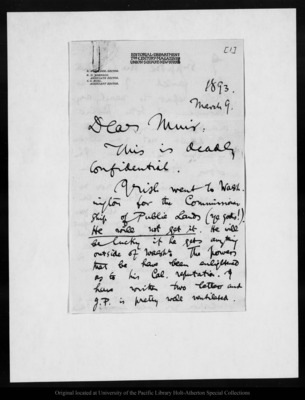 [1]
EDITORIAL DEPARTMENT
THE CENTURY MAGAZINE
UNION SQUARE NEW YORK
1893.
March 9.
Dear Muir:
This is deadly
confidential.
Irish went to Wash-
ington for the Commissioner
ship of Public Lands (ye gods!).
He will not get it. He will
be lucky if he gets anything
outside of The powers
that be have been enlightened
as to his Cal. reputation. I
have written two letters and
J.P. is pretty well ventilated.
Original located at University of the Pacific Library Holt-Atherton Special Collections.